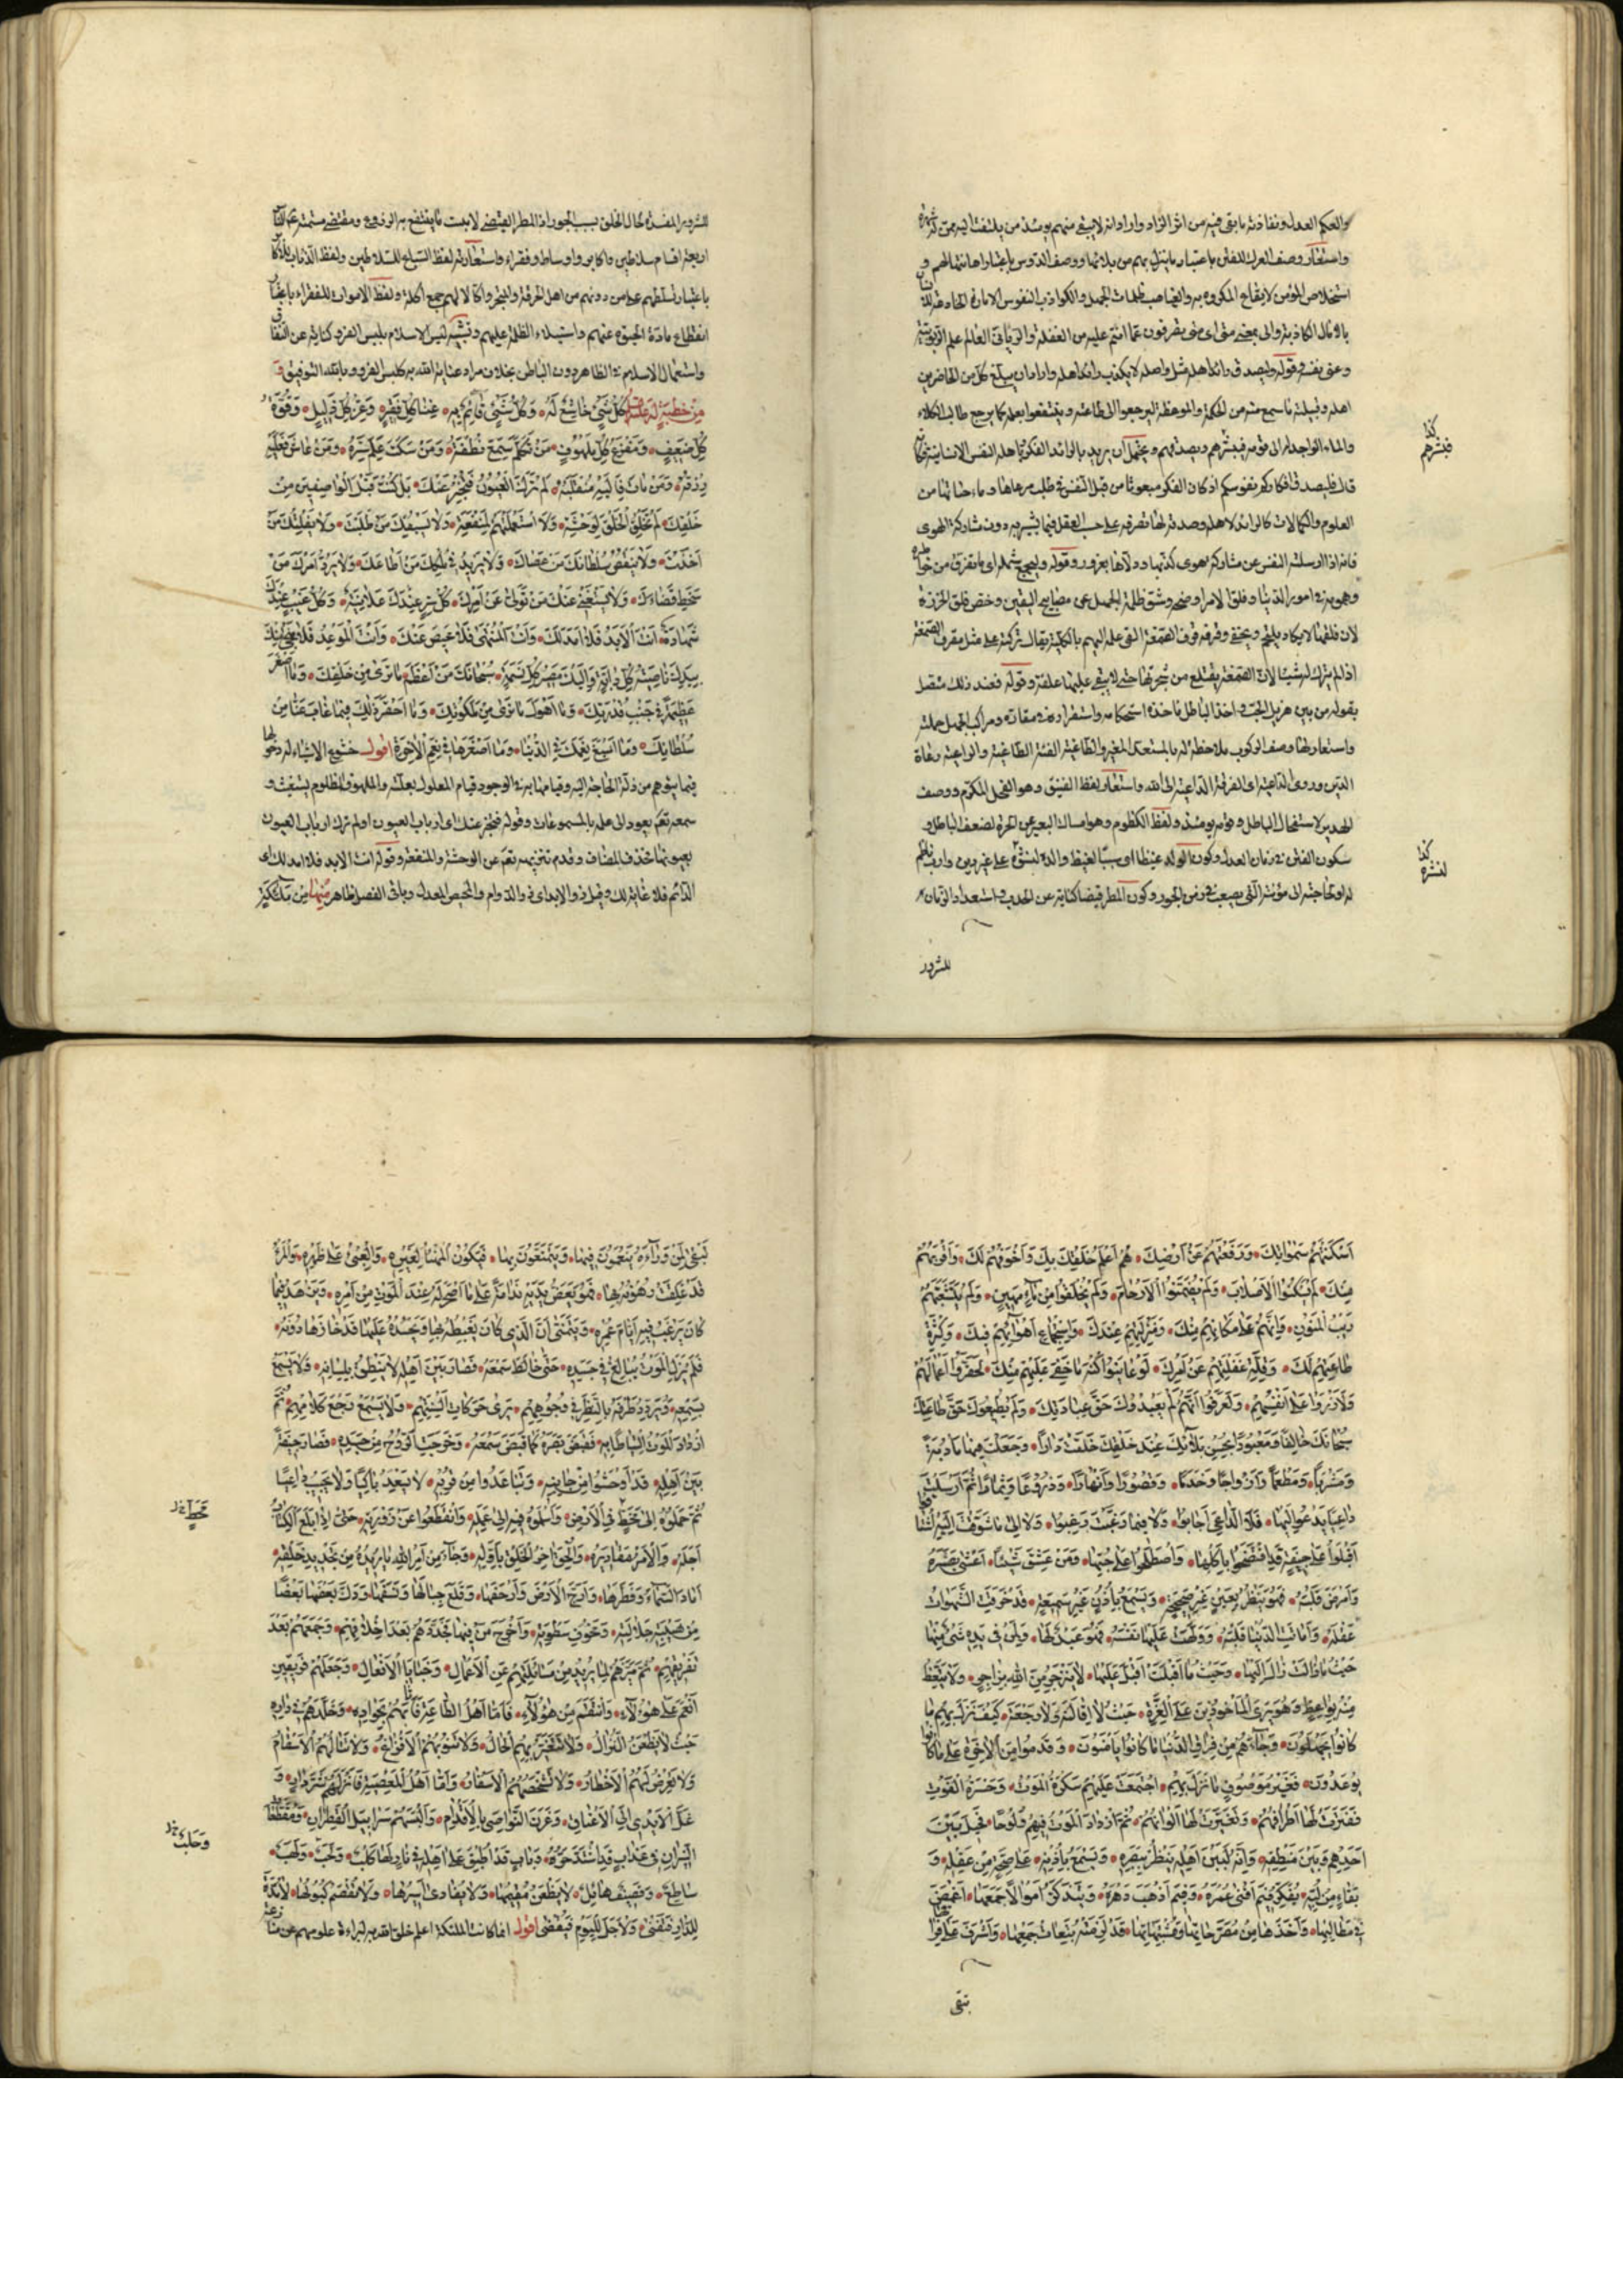 والعكم العدل ونفاذته ما بقى فيه من اثر الزاد واراد انه لا يبقى منهم يومئذ من يلتفت اليه ممن له شهرة
واستعار وصف العرك للفتن باعتبار ما ينزل بهم من بلائها ووصف الدوس باعتبار اهانتها لهم و
استخلاص المؤمن لايقاع المكروه به والغياهب ظلمات الجهل والكواذب النفوس الامارة الخادعة للانسان
بالآمال الكاذبة والى بمعنى متى اى متى يصرفون عما انتم عليه من الغفلة والربانى العالم علم الربوبية
وعنى نفسه وقوله وليصدق رائد اهله مثل واصله لا يكذب رائد اهله واراد ان يبلغ كل من الحاضرين
اهله وقبيلته ما سمع منه من الحكمة والموعظة ليرجعوا الى طاعته وينتفعوا بعلمه كما يرجع طالب الكلاء
والماء الواجد له الى قومه فيبشرهم ويصدقهم ويحتمل ان يريد بالرائد الفكر وباهله النفس الانسانية فكانه
قال فليصدق افكاركم نفوسكم اذ كان الفكر مبعوثا من قبل النفس فى طلب مرعاها وماء حياتها من
العلوم والكمالات كالرائد لاهله وصدقه لها تصرفه على حسب العقل فيما يشير به دون مشاركة الهوى
فانه اذا ارسلته النفس عن مشاركة الهوى كذبها ودلاها بغرور وقوله وليجمع شمله اى ما تفرق من خواطره
وهمومه فى امور الدنيا وفلق الامر اوضحه وشق ظلمة الجهل عن مصابيح اليقين وخص فلق الخرزة
لان فلقها لا يكاد يلتحم ويخفى وقرفه قرف الصمغة القى علمه اليهم بالكلية يقال تركته على مثل مقرف الصمغة
اذا لم يترك له شيئا لان الصمغة يقتلع من شجرتها حتى لا يبقى عليها علقة وقوله فعند ذلك متصل
بقوله من بين هزيل الحب واخذ الباطل مآخذه استحكامه واستقراره فى مقاره ومراكب الجهل حملته
واستعار لها وصف الركوب ملاحظة له بالمستعد للغيرة والطاغية الفتنة الطاغية والراعية رعاة
الدين وروى الداعية اى الفرقة الداعية الى الله واستعار لفظ الفنيق وهو الفحل المكرم ووصف
الهدير لاستفحال الباطل وقوته يومئذ ولفظ الكظوم وهو امساك البعير عن الجرة لضعف الباطل و
سكون الفتن فى زمان العدل وكون الولد غيظا اى سببا لغيظ والده لنشوه على غير دين وادب نافع
له او لحاجته الى مؤنته التى يصعب فى زمن الجور وكون المطر قيضا كناية عن الجدب واستعداد الزمان
للشرور
كذا
فيبشرهم
كذا
لنشره
للشرور المفسدة لحال الخلق بسبب الجور اذ المطر القيضى لا ينبت ما ينتفع به الزرع ومقتضى ... الناس
اربعة اقسام سلاطين واكابر واوساط وفقراء واستعار لفظ السباع للسلاطين ولفظ الذئاب للاكابر
باعتبار تسلطهم على من دونهم من اهل الحرفة والتجر واكالا لهم جمع اكلة ولفظ الاموات للفقراء باعتبار
انقطاع مادة الحيوة عنهم واستيلاء الظلمة عليهم وتشبيه لبس الاسلام بلبس الفرو كناية عن النفاق
واستعمال الاسلام فى الظاهر دون الباطن بخلاف مراد عناية الله به كلبس الفرو وبالله التوفيق و
مِن خُطبَةٍ لَهُ عَلَيهِ السلام كُلُّ شَيْءٍ خَاشِعٌ لَهُ وَكُلُّ شَيْءٍ قَائِمٌ بِهِ غِنَى كُلِّ فَقِيرٍ وَعِزُّ كُلِّ ذَلِيلٍ وَقُوَّةُ
كُلِّ ضَعِيفٍ وَمَفْزَعُ كُلِّ مَلْهُوفٍ مَنْ تَكَلَّمَ سَمِعَ نُطْقَهُ وَمَنْ سَكَتَ عَلِمَ سِرَّهُ وَمَنْ عَاشَ فَعَلَيْهِ
رِزْقُهُ وَمَنْ مَاتَ فَاِلَيْهِ مُنْقَلَبُهُ لَمْ تَرَكَ الْعُيُونُ فَتُخْبِرَ عَنْكَ بَلْ كُنْتَ قَبْلَ الْوَاصِفِينَ مِنْ
خَلْقِكَ لَمْ تَخْلُقِ الْخَلْقَ لِوَحْشَةٍ وَلَا اسْتَعْمَلْتَهُمْ لِمَنْفَعَةٍ وَلَا يَسْبِقُكَ مَنْ طَلَبْتَ وَلَا يُفْلِتُكَ مَنْ
اَخَذْتَ وَلَا يَنْقُصُ سُلْطَانَكَ مَنْ عَصَاكَ وَلَا يَزِيدُ فِي مُلْكِكَ مَنْ اَطَاعَكَ وَلَا يَرُدُّ اَمْرَكَ مَنْ
سَخِطَ قَضَاءَكَ وَلَا يَسْتَغْنِي عَنْكَ مَنْ تَوَلَّى عَنْ اَمْرِكَ كُلُّ سِرٍّ عِنْدَكَ عَلَانِيَةٌ وَكُلُّ غَيْبٍ عِنْدَكَ
شَهَادَةٌ اَنْتَ الْاَبَدُ فَلَا اَمَدَ لَكَ وَاَنْتَ الْمُنْتَهَى فَلَا مَحِيصَ عَنْكَ وَاَنْتَ الْمَوْعِدُ فَلَا مَنْجَى مِنْكَ
بِيَدِكَ نَاصِيَةُ كُلِّ دَابَّةٍ وَاِلَيْكَ مَصِيرُ كُلِّ نَسَمَةٍ سُبْحَانَكَ مَا اَعْظَمَ مَا نَرَى مِنْ خَلْقِكَ وَمَا اَصْغَرَ
عَظِيمَهُ فِي جَنْبِ قُدْرَتِكَ وَمَا اَهْوَلَ مَا نَرَى مِنْ مَلَكُوتِكَ وَمَا اَحْقَرَ ذَلِكَ فِيمَا غَابَ عَنَّا مِنْ
سُلْطَانِكَ وَمَا اَسْبَغَ نِعَمَكَ فِي الدُّنْيَا وَمَا اَصْغَرَهَا فِي نِعَمِ الْآخِرَةِ اقول خشوع الاشياء له دخولها
فيما يتوهم من ذلة الحاجة اليه وقيامها به فى الوجود قيام المعلول بعلته والملهوف المظلوم يستغيث و
سمعه تعم يعود الى علمه بالمسموعات وقوله فتخبر عنك اى ارباب العيون او لم ترك ارباب العيون
بعيونها فحذف المضاف وقدم تنزيهه تعم عن الوحشة والمنفعة وقوله انت الابد فلا امد لك اى
الدائم فلا غاية لك وقيل ذو الابد اى ذو الدوام والمحيص المعدل وباقى الفصل ظاهر مِنْهَا مِنْ مَلَائِكَةٍ
اَسْكَنْتَهُمْ سَمٰوَاتِكَ وَرَفَعْتَهُمْ عَنْ اَرْضِكَ هُمْ اَعْلَمُ خَلْقِكَ بِكَ وَاَخْوَفُهُمْ لَكَ وَاَقْرَبُهُمْ
مِنْكَ لَمْ يَسْكُنُوا الْاَصْلَابَ وَلَمْ يُضَمَّنُوا الْاَرْحَامَ وَلَمْ يُخْلَقُوا مِنْ مَاءٍ مَهِينٍ وَلَمْ يَتَشَعَّبْهُمْ
رَيْبُ الْمَنُونِ وَاِنَّهُمْ عَلَى مَكَانِهِمْ مِنْكَ وَمَنْزِلَتِهِمْ عِنْدَكَ وَاسْتِجْمَاعِ اَهْوَائِهِمْ فِيكَ وَكَثْرَةِ
طَاعَتِهِمْ لَكَ وَقِلَّةِ غَفْلَتِهِمْ عَنْ اَمْرِكَ لَوْ عَايَنُوا كُنْهَ مَا خَفِيَ عَلَيْهِمْ مِنْكَ لَحَقَّرُوا اَعْمَالَهُمْ
وَلَازْرَوْا عَلَى اَنْفُسِهِمْ وَلَعَرَفُوا اَنَّهُمْ لَمْ يَعْبُدُوكَ حَقَّ عِبَادَتِكَ وَلَمْ يُطِيعُوكَ حَقَّ طَاعَتِكَ
سُبْحَانَكَ خَالِقًا وَمَعْبُودًا بِحُسْنِ بَلَائِكَ عِنْدَ خَلْقِكَ خَلَقْتَ دَارًا وَجَعَلْتَ فِيهَا مَأْدُبَةً
وَمَشْرَبًا وَمَطْعَمًا وَاَزْوَاجًا وَخَدَمًا وَقُصُورًا وَاَنْهَارًا وَزُرُوعًا وَثِمَارًا ثُمَّ اَرْسَلْتَ
دَاعِيًا يَدْعُو اِلَيْهَا فَلَا الدَّاعِيَ اَجَابُوا وَلَا فِيمَا رَغَّبْتَ رَغِبُوا وَلَا اِلَى مَا شَوَّقْتَ اِلَيْهِ اشْتَاقُوا
اَقْبَلُوا عَلَى جِيفَةٍ قَدِ افْتَضَحُوا بِاَكْلِهَا وَاصْطَلَحُوا عَلَى حُبِّهَا وَمَنْ عَشِقَ شَيْئًا اَعْشَى بَصَرَهُ
وَاَمْرَضَ قَلْبَهُ فَهُوَ يَنْظُرُ بِعَيْنٍ غَيْرِ صَحِيحَةٍ وَيَسْمَعُ بِاُذُنٍ غَيْرِ سَمِيعَةٍ قَدْ خَرَقَتِ الشَّهَوَاتُ
عَقْلَهُ وَاَمَاتَتِ الدُّنْيَا قَلْبَهُ وَوَلِهَتْ عَلَيْهَا نَفْسُهُ فَهُوَ عَبْدٌ لَهَا وَلِمَنْ فِي يَدِهِ شَيْءٌ مِنْهَا
حَيْثُ مَا زَالَتْ زَالَ اِلَيْهَا وَحَيْثُ مَا اَقْبَلَتْ اَقْبَلَ عَلَيْهَا لَا يَنْزَجِرُ مِنَ اللهِ بِزَاجِرٍ وَلَا يَتَّعِظُ
مِنْهُ بِوَاعِظٍ وَهُوَ يَرَى الْمَأْخُوذِينَ عَلَى الْغِرَّةِ حَيْثُ لَا اِقَالَةَ وَلَا رَجْعَةَ كَيْفَ نَزَلَ بِهِمْ مَا
كَانُوا يَجْهَلُونَ وَجَاءَهُمْ مِنْ فِرَاقِ الدُّنْيَا مَا كَانُوا يَأْمَنُونَ وَقَدِمُوا مِنَ الْآخِرَةِ عَلَى مَا كَانُوا
يُوعَدُونَ فَغَيْرُ مَوْصُوفٍ مَا نَزَلَ بِهِمْ اجْتَمَعَتْ عَلَيْهِمْ سَكْرَةُ الْمَوْتِ وَحَسْرَةُ الْفَوْتِ
فَفَتَرَتْ لَهَا اَطْرَافُهُمْ وَتَغَيَّرَتْ لَهَا اَلْوَانُهُمْ ثُمَّ ازْدَادَ الْمَوْتُ فِيهِمْ وُلُوجًا فَحِيلَ بَيْنَ
اَحَدِهِمْ وَبَيْنَ مَنْطِقِهِ وَاِنَّهُ لَبَيْنَ اَهْلِهِ يَنْظُرُ بِبَصَرِهِ وَيَسْمَعُ بِاُذُنِهِ عَلَى صِحَّةٍ مِنْ عَقْلِهِ وَ
بَقَاءٍ مِنْ لُبِّهِ يُفَكِّرُ فِيمَ اَفْنَى عُمْرَهُ وَفِيمَ اَذْهَبَ دَهْرَهُ وَيَتَذَكَّرُ اَمْوَالًا جَمَعَهَا اَغْمَضَ
فِي مَطَالِبِهَا وَاَخَذَهَا مِنْ مُصَرَّحَاتِهَا وَمُشْتَبِهَاتِهَا قَدْ لَزِمَتْهُ تَبِعَاتُ جَمْعِهَا وَاَشْرَفَ عَلَى فِرَاقِهَا
تبقى
تَبْقَى لِمَنْ وَرَاءَهُ يَنْعَمُونَ فِيهَا وَيَتَمَتَّعُونَ بِهَا فَيَكُونُ الْمَهْنَأُ لِغَيْرِهِ وَالْعِبْءُ عَلَى ظَهْرِهِ وَالْمَرْءُ
قَدْ غَلِقَتْ رُهُونُهُ بِهَا فَهُوَ يَعَضُّ يَدَيْهِ نَدَامَةً عَلَى مَا اَصْحَرَ لَهُ عِنْدَ الْمَوْتِ مِنْ اَمْرِهِ وَيَزْهَدُ فِيمَا
كَانَ يَرْغَبُ فِيهِ اَيَّامَ عُمْرِهِ وَيَتَمَنَّى اَنَّ الَّذِي كَانَ يَغْبِطُهُ بِهَا وَيَحْسُدُهُ عَلَيْهَا قَدْ حَازَهَا دُونَهُ
فَلَمْ يَزَلِ الْمَوْتُ يُبَالِغُ فِي جَسَدِهِ حَتَّى خَالَطَ سَمْعَهُ فَصَارَ بَيْنَ اَهْلِهِ لَا يَنْطِقُ بِلِسَانِهِ وَلَا يَسْمَعُ
بِسَمْعِهِ يُرَدِّدُ طَرْفَهُ بِالنَّظَرِ فِي وُجُوهِهِمْ يَرَى حَرَكَاتِ اَلْسِنَتِهِمْ وَلَا يَسْمَعُ رَجْعَ كَلَامِهِمْ ثُمَّ
ازْدَادَ الْمَوْتُ الْتِيَاطًا بِهِ فَقَبَضَ بَصَرَهُ كَمَا قَبَضَ سَمْعَهُ وَخَرَجَتِ الرُّوحُ مِنْ جَسَدِهِ فَصَارَ جِيفَةً
بَيْنَ اَهْلِهِ قَدْ اَوْحَشُوا مِنْ جَانِبِهِ وَتَبَاعَدُوا مِنْ قُرْبِهِ لَا يُسْعِدُ بَاكِيًا وَلَا يُجِيبُ دَاعِيًا
ثُمَّ حَمَلُوهُ اِلَى مَخَطٍّ فِي الْاَرْضِ وَاَسْلَمُوهُ فِيهِ اِلَى عَمَلِهِ وَانْقَطَعُوا عَنْ زَوْرَتِهِ حَتَّى اِذَا بَلَغَ الْكِتَابُ
اَجَلَهُ وَالْاَمْرُ مَقَادِيرَهُ وَاُلْحِقَ آخِرُ الْخَلْقِ بِاَوَّلِهِ وَجَاءَ مِنْ اَمْرِ اللهِ مَا يُرِيدُهُ مِنْ تَجْدِيدِ خَلْقِهِ
اَمَادَ السَّمَاءَ وَفَطَرَهَا وَاَرَجَّ الْاَرْضَ وَاَرْجَفَهَا وَقَلَعَ جِبَالَهَا وَنَسَفَهَا وَدَكَّ بَعْضُهَا بَعْضًا
مِنْ هَيْبَةِ جَلَالَتِهِ وَمَخُوفِ سَطْوَتِهِ وَاَخْرَجَ مَنْ فِيهَا فَجَدَّدَهُمْ بَعْدَ اِخْلَاقِهِمْ وَجَمَعَهُمْ بَعْدَ
تَفْرِيقِهِمْ ثُمَّ مَيَّزَهُمْ لِمَا يُرِيدُ مِنْ مَسَائِلِهِمْ عَنِ الْاَعْمَالِ وَخَبَايَا الْاَفْعَالِ وَجَعَلَهُمْ فَرِيقَيْنِ
اَنْعَمَ عَلَى هٰؤُلَاءِ وَانْتَقَمَ مِنْ هٰؤُلَاءِ فَاَمَّا اَهْلُ الطَّاعَةِ فَاَثَابَهُمْ بِجِوَارِهِ وَخَلَّدَهُمْ فِي دَارِهِ
حَيْثُ لَا يَظْعَنُ النُّزَّالُ وَلَا تَتَغَيَّرُ بِهِمُ الْحَالُ وَلَا تَنُوبُهُمُ الْاَفْزَاعُ وَلَا تَنَالُهُمُ الْاَسْقَامُ
وَلَا تَعْرِضُ لَهُمُ الْاَخْطَارُ وَلَا تُشْخِصُهُمُ الْاَسْفَارُ وَاَمَّا اَهْلُ الْمَعْصِيَةِ فَاَنْزَلَهُمْ شَرَّ دَارٍ وَ
غَلَّ الْاَيْدِيَ اِلَى الْاَعْنَاقِ وَقَرَنَ النَّوَاصِيَ بِالْاَقْدَامِ وَاَلْبَسَهُمْ سَرَابِيلَ الْقَطِرَانِ وَمُقَطَّعَاتِ
النِّيرَانِ فِي عَذَابٍ قَدِ اشْتَدَّ حَرُّهُ وَبَابٍ قَدْ اُطْبِقَ عَلَى اَهْلِهِ فِي نَارٍ لَهَا كَلَبٌ وَلَجَبٌ وَلَهَبٌ
سَاطِعٌ وَقَصِيفٌ هَائِلٌ لَا يَظْعَنُ مُقِيمُهَا وَلَا يُفَادَى اَسِيرُهَا وَلَا تُفْصَمُ كُبُولُهَا لَا مُدَّةَ
لِلدَّارِ فَتَفْنَى وَلَا اَجَلَ لِلْقَوْمِ فَيُقْضَى اقول انما كانت الملئكة اعلم خلق الله به لبراءة علومهم عن منازعة
مَحَطٍّ خ
وَجَلَبٌ خ